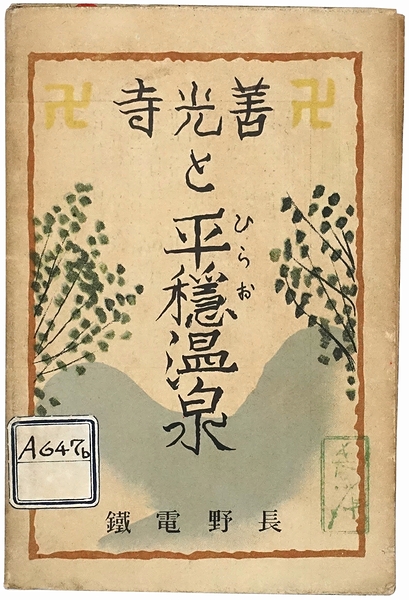 卍 善光寺 卍
と
平穏温泉
ひらお
長野電鐵
A647b